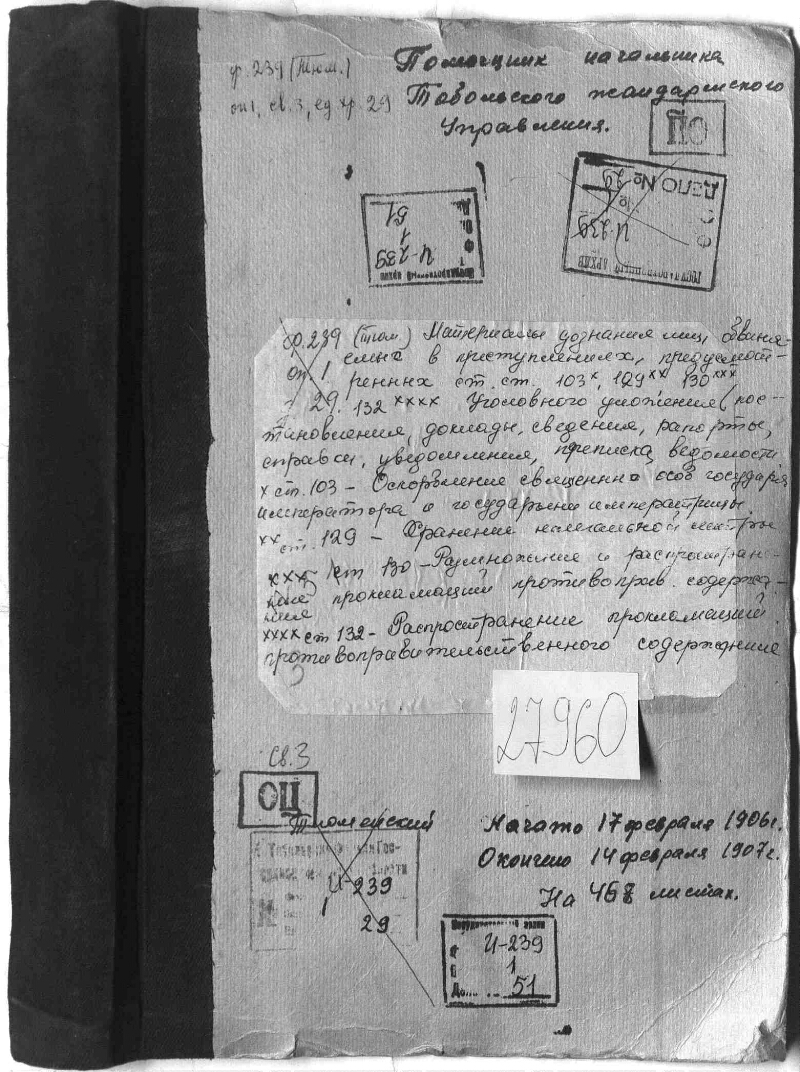 ф. 239 (Тюм.)
оп 1, св. 3, ед хр. 29
Помощник начальника
Тобольского жандармского
Управления.
ОЦ
И-239
1
51
ГОСУДАРСТВЕННЫЙ АРХИВ
Ф И-239
О №
ДЕЛО № 29
ф. 239 (тюм.) Материалы дознания лиц, обвиня-
емых в приступлениях, предусмот-
оп 1 ренных ст. ст. 103ˣ, 129ˣˣ 130ˣˣˣ
29. 132ˣˣˣˣ Уголовного уложения (пос-
тановления, доклады, сведения, рапорты,
справки, уведомления, переписка, ведомости
х ст. 103 – Оскорбление священно особ государя
императора и государыни императрицы.
хх ст. 129 – Хранение нелегальной
ххх ст 130 – Размножение и распростране-
ние прокламаций противоправ. содержа-
ния
хххх ст 132 – Распространение прокламаций
противоправительственного содержания
27960
св. 3
ОЦ
Тюменский
И-239
1
29
Начато 17 февраля 1906г.
Окончено 14 февраля 1907г.
На 468 листах.
И-239
1
51